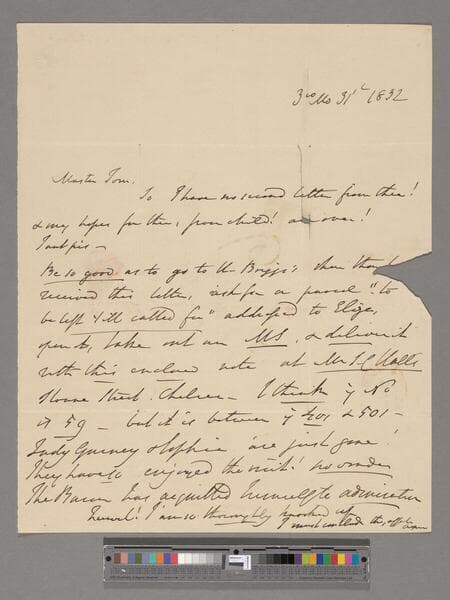 3rd Mo 31st 1832
Master Tom.
So I have no second letter from thee!
& my hopes for thee, poor child! are over!
Tant pis –
Be so good as to go to Mr Briggs's when thou
received this letter, ask for a parcel "to
be left till called for" addressed to Eliza,
open it, take out an MS, & deliver it
with this enclosed note at Mr S C Halls
Sloane Street. Chelsea – I think ye No
is 59 – but it is between ye 40s & 50s –
Lady Gurney & Sophia are just gone!
They have so enjoyed the visit! no wonder
The Bacon has acquitted himself to admiration
Farewell! I am so thoroughly knocked up
I must